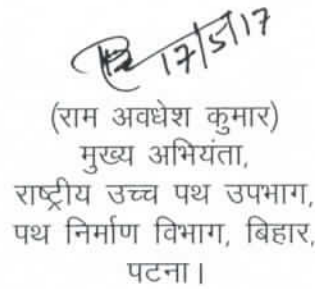 17/5/17
(राम अवधेश कुमार)
मुख्य अभियंता,
राष्ट्रीय उच्च पथ उपभाग,
पथ निर्माण विभाग, बिहार,
पटना।